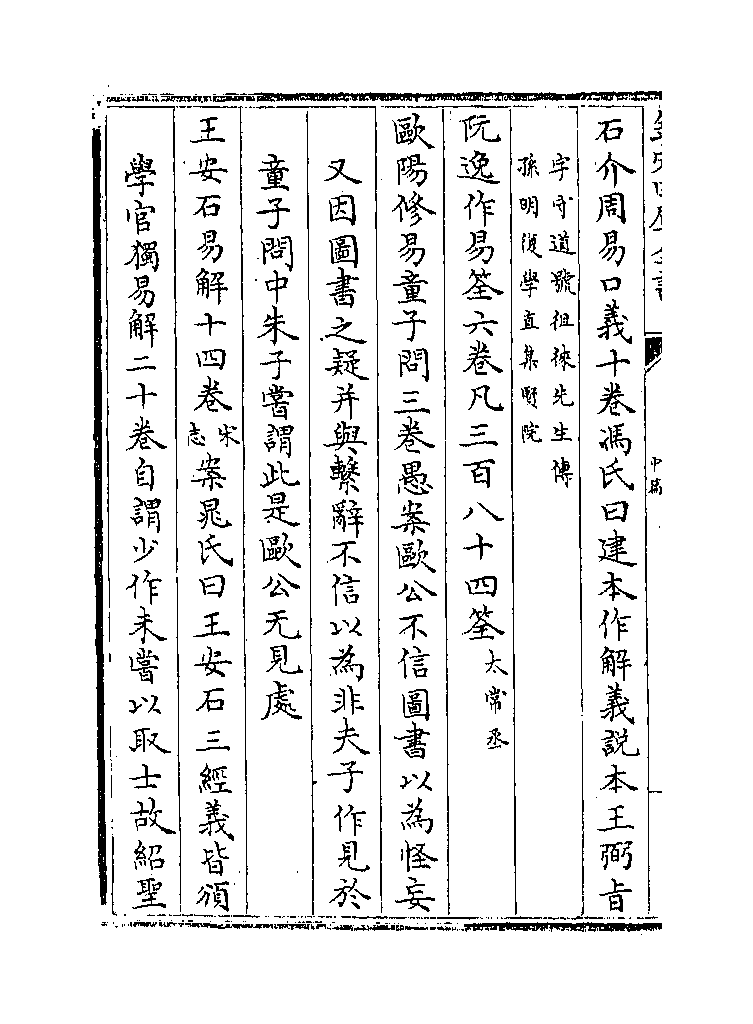 石介周易口義十卷馮氏曰建本作解義説本王弼旨
字守道號徂徠先生傳
孫明復學直集賢院
阮逸作易筌六卷凡三百八十四筌太常丞
歐陽修易童子問三卷愚案歐公不信圖書以為怪妄
又因圖書之疑并與繫辭不信以為非夫子作見於
童子問中朱子嘗謂此是歐公无見處
王安石易解十四卷宋志案晁氏曰王安石三經義皆頒
學官獨易解二十卷自謂少作未嘗以取士故紹聖